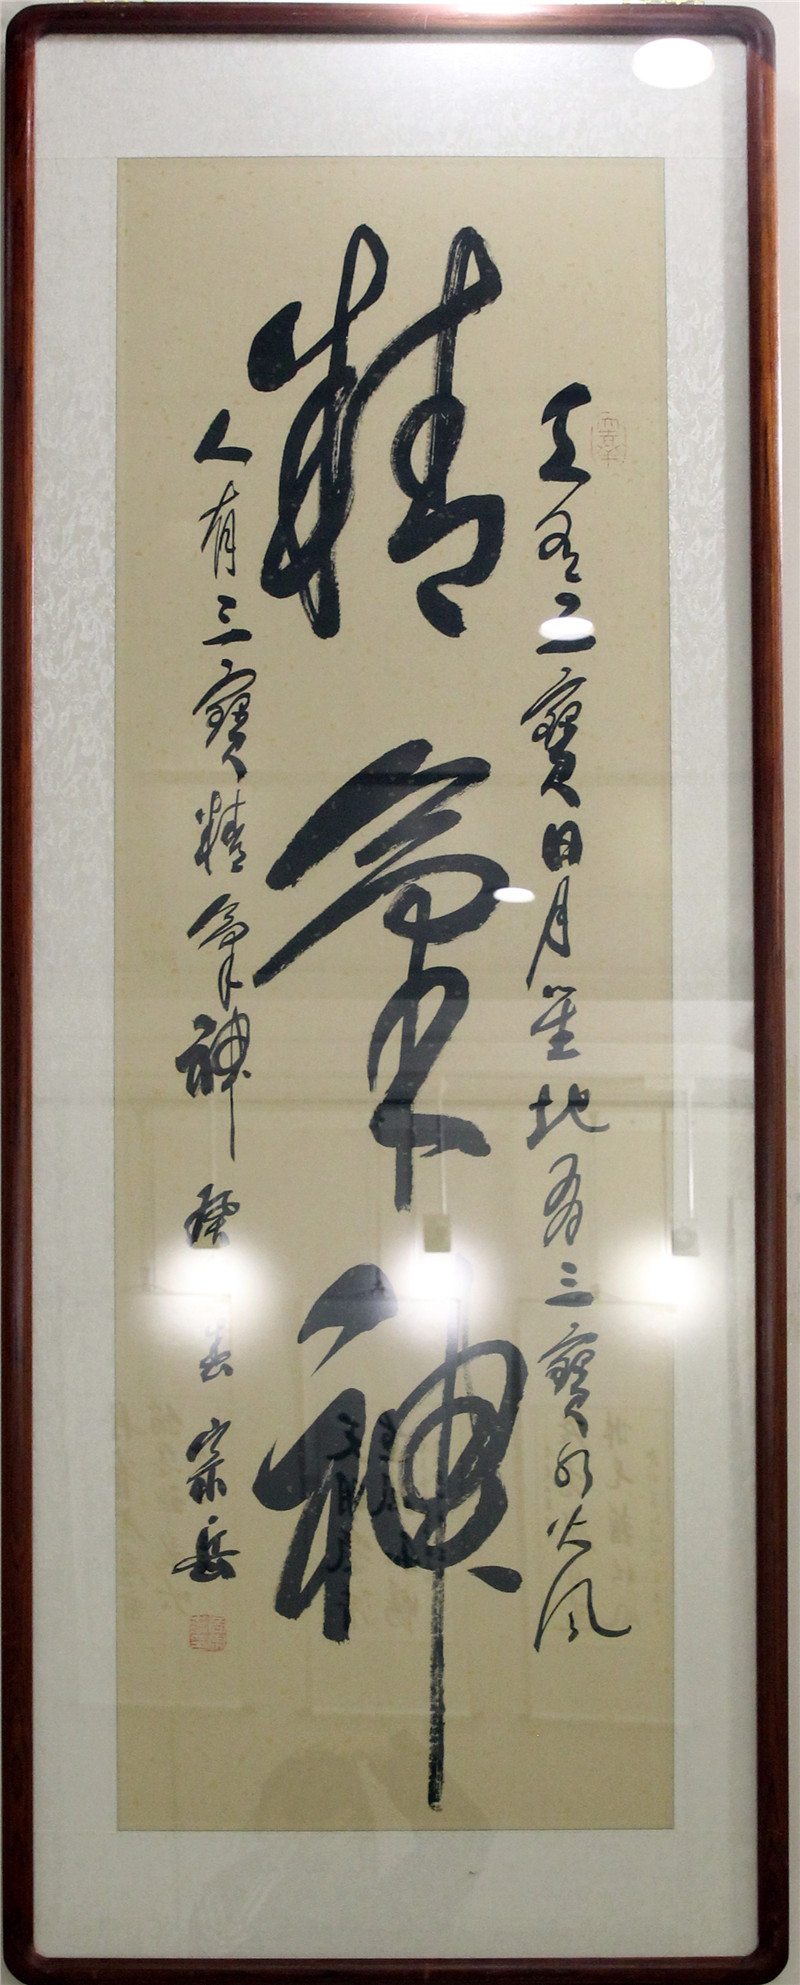 天有三寶日月星地有三寶水火風
精氣神
人有三寶精氣神 癸 春 宗岳